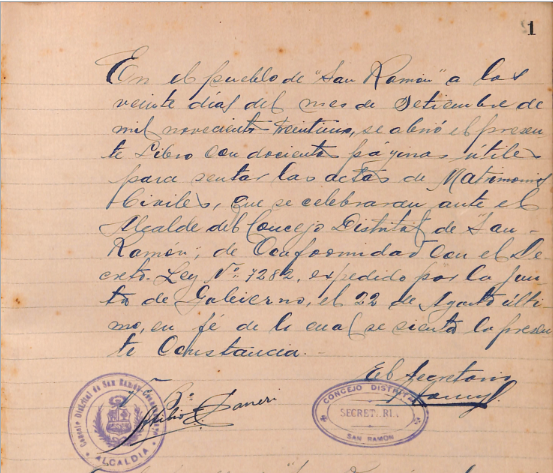 1
En el pueblo de "San Ramón" a los
veinte días del mes de Setiembre de
mil novecientos treintiuno, se abrió el presen-
te Libro con docientas páginas útiles
para sentar las actas de Matrimonios
Civiles, que se celebraran ante el
Alcalde del Concejo Distrital de "San-
Ramón", de Conformidad con el De-
creto Ley Nº 7282, expedido por la Jun-
ta de Gobierno, el 22 de Agosto últi-
mo, en fé de lo cual se sienta la presen-
te Constancia.-
El Secretario
Concejo Distrital de San Ramón
ALCALDIA
CONCEJO DISTRITAL
SECRETARI.
SAN RAMON